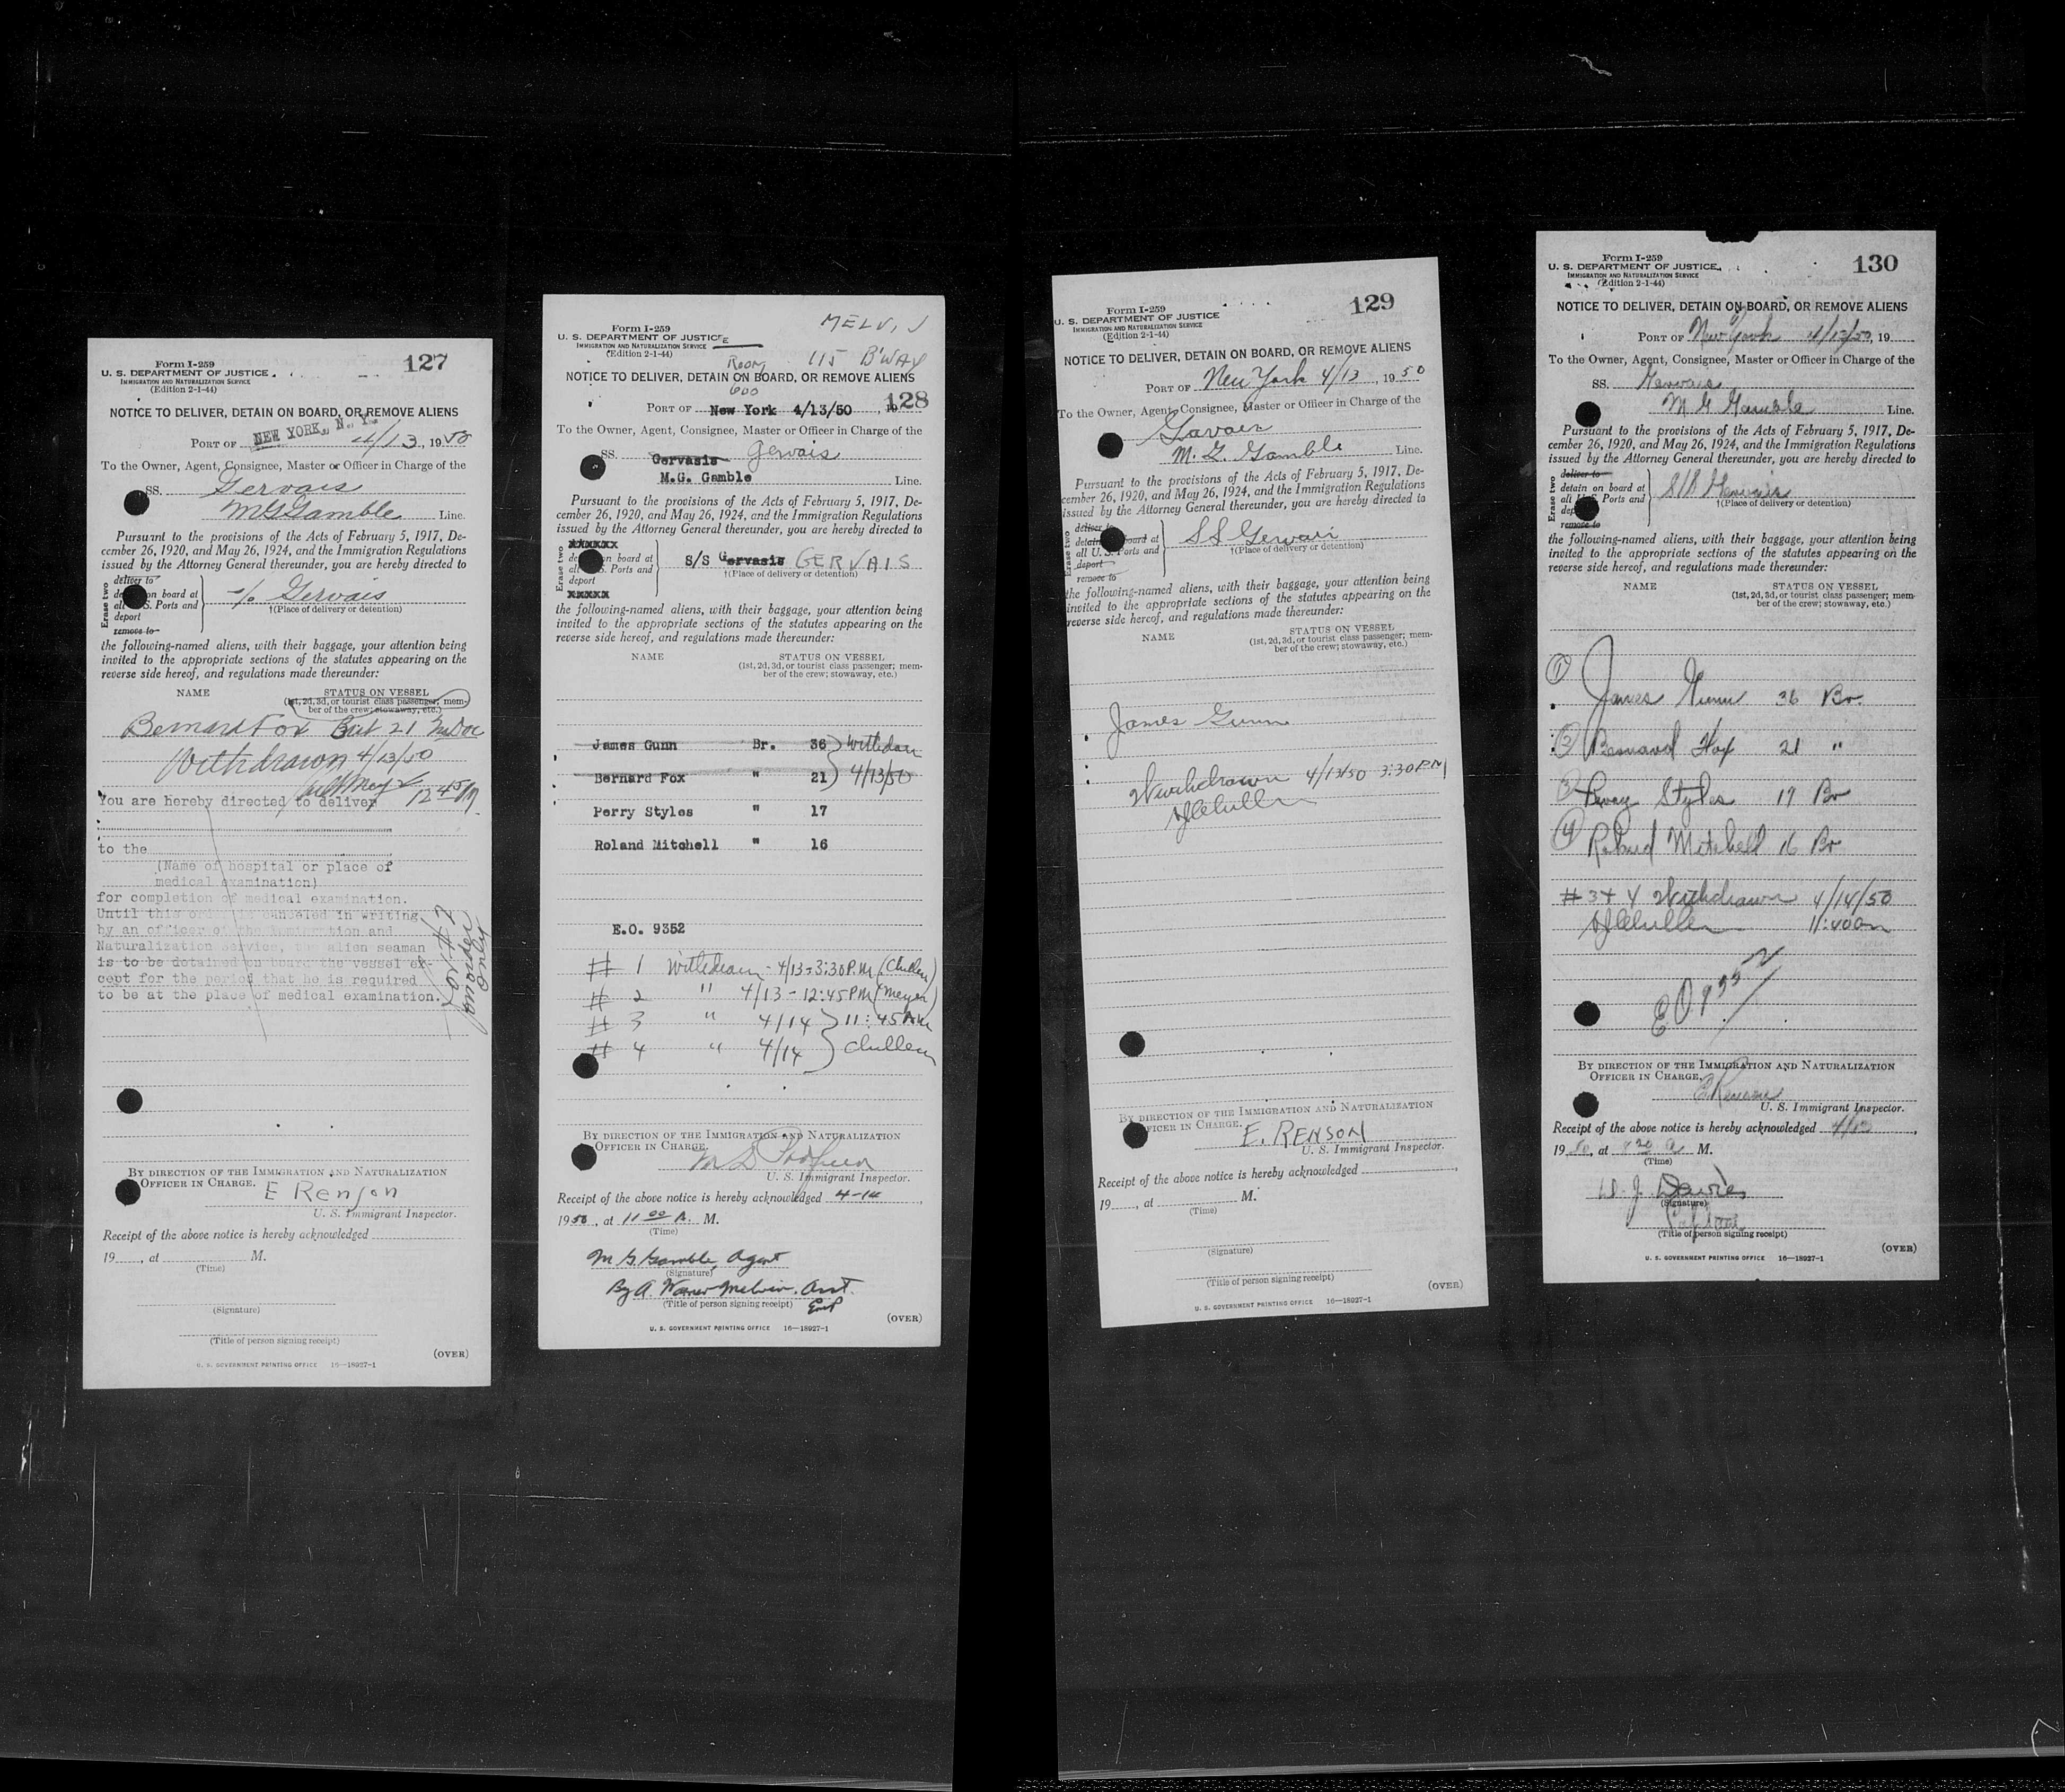 Form I-259
U. S. DEPARTMENT OF JUSTICE
IMMIGRATION AND NATURALIZATION SERVICE
(Edition 2-1-44)
127
NOTICE TO DELIVER, DETAIN ON BOARD, OR REMOVE ALIENS
PORT OF NEW YORK, N. Y. 4/13, 1950
To the Owner, Agent, Consignee, Master or Officer in Charge of the
SS. Gervais
M G Gamble Line.
Pursuant to the provisions of the Acts of February 5, 1917, De-
cember 26, 1920, and May 26, 1924, and the Immigration Regulations
issued by the Attorney General thereunder, you are hereby directed to
Erase two
deliver to
on board at
S. Ports and
deport
remove to
Gervais
†(Place of delivery or detention)
the following-named aliens, with their baggage, your attention being
invited to the appropriate sections of the statutes appearing on the
reverse side hereof, and regulations made thereunder:
NAME STATUS ON VESSEL
(1st, 2d, 3d, or tourist class passenger; mem-
ber of the crew; stowaway, etc.)
Bernard Fox Brit 21
Withdrawn 4/13/50
12 45 PM
You are hereby directed to deliver
to the
(Name of hospital or place of
medical examination)
for completion of medical examination.
Until this order is canceled in writing
by an officer of the Immigration and
Naturalization Service, the alien seaman
is to be detained on board the vessel ex-
cept for the period that he is required
to be at the place of medical examination.
only
BY DIRECTION OF THE IMMIGRATION AND NATURALIZATION
OFFICER IN CHARGE.
E Renson
U. S. Immigrant Inspector.
Receipt of the above notice is hereby acknowledged
19, at M.
(Time)
(Signature)
(Title of person signing receipt)
(OVER)
U. S. GOVERNMENT PRINTING OFFICE 16—18927-1
MELVIN
Form I-259
U. S. DEPARTMENT OF JUSTICE
IMMIGRATION AND NATURALIZATION SERVICE
(Edition 2-1-44)
ROOM 600 115 B'WAY
NOTICE TO DELIVER, DETAIN ON BOARD, OR REMOVE ALIENS
128
PORT OF New York 4/13/50, 19
To the Owner, Agent, Consignee, Master or Officer in Charge of the
SS. Gervasis Gervais
M.G. Gamble Line.
Pursuant to the provisions of the Acts of February 5, 1917, De-
cember 26, 1920, and May 26, 1924, and the Immigration Regulations
issued by the Attorney General thereunder, you are hereby directed to
Erase two
xxxxxx
on board at
S. Ports and
deport
xxxxx
S/S Gervasis GERVAIS
†(Place of delivery or detention)
the following-named aliens, with their baggage, your attention being
invited to the appropriate sections of the statutes appearing on the
reverse side hereof, and regulations made thereunder:
NAME STATUS ON VESSEL
(1st, 2d, 3d, or tourist class passenger; mem-
ber of the crew; stowaway, etc.)
James Gunn Br. 36 Withdrawn
Bernard Fox " 21 4/13/50
Perry Styles " 17
Roland Mitchell " 16
E.O. 9352
# 1 Withdrawn - 4/13 - 3:30 P.M (Cullen)
# 2 " 4/13 - 12:45 PM (Meyer)
# 3 " 4/14 11:45 AM
# 4 " 4/14 Cullen
BY DIRECTION OF THE IMMIGRATION AND NATURALIZATION
OFFICER IN CHARGE.
U. S. Immigrant Inspector.
Receipt of the above notice is hereby acknowledged 4-14,
1950, at 11 00 A. M.
(Time)
M G. Gamble, Agent
(Signature)
By A. Warner Melvin. Asst.
(Title of person signing receipt)
(OVER)
U. S. GOVERNMENT PRINTING OFFICE 16—18927-1
Form I-259
U. S. DEPARTMENT OF JUSTICE
IMMIGRATION AND NATURALIZATION SERVICE
(Edition 2-1-44)
129
NOTICE TO DELIVER, DETAIN ON BOARD, OR REMOVE ALIENS
PORT OF New York 4/13, 1950
To the Owner, Agent, Consignee, Master or Officer in Charge of the
M. G. Gamble Line.
Pursuant to the provisions of the Acts of February 5, 1917, De-
cember 26, 1920, and May 26, 1924, and the Immigration Regulations
issued by the Attorney General thereunder, you are hereby directed to
Erase two
deliver to
board at
all U. Ports and
deport
remove to
SS Gervais
†(Place of delivery or detention)
the following-named aliens, with their baggage, your attention being
invited to the appropriate sections of the statutes appearing on the
reverse side hereof, and regulations made thereunder:
NAME STATUS ON VESSEL
(1st, 2d, 3d, or tourist class passenger; mem-
ber of the crew; stowaway, etc.)
James Gunn
Withdrawn 4/13/50 3:30 PM
BY DIRECTION OF THE IMMIGRATION AND NATURALIZATION
OFFICER IN CHARGE.
E. RENSON
U. S. Immigrant Inspector.
Receipt of the above notice is hereby acknowledged
19, at M.
(Time)
(Signature)
(Title of person signing receipt)
(OVER)
U. S. GOVERNMENT PRINTING OFFICE 16—18927-1
Form I-259
U. S. DEPARTMENT OF JUSTICE
IMMIGRATION AND NATURALIZATION SERVICE
(Edition 2-1-44)
130
NOTICE TO DELIVER, DETAIN ON BOARD, OR REMOVE ALIENS
PORT OF New York 4/13/50, 19
To the Owner, Agent, Consignee, Master or Officer in Charge of the
SS. Gervais
M G Gamble Line.
Pursuant to the provisions of the Acts of February 5, 1917, De-
cember 26, 1920, and May 26, 1924, and the Immigration Regulations
issued by the Attorney General thereunder, you are hereby directed to
Erase two
deliver to
detain on board at
all U. S. Ports and
remove to
S/S Gervais
†(Place of delivery or detention)
the following-named aliens, with their baggage, your attention being
invited to the appropriate sections of the statutes appearing on the
reverse side hereof, and regulations made thereunder:
NAME STATUS ON VESSEL
(1st, 2d, 3d, or tourist class passenger; mem-
ber of the crew; stowaway, etc.)
① James Gunn 36 Br.
② Bernard Fox 21 "
③ Perry Styles 17 Br
④ Roland Mitchell 16 Br
# 3 + 4 Withdrawn 4/14/50
11:40 am
EO 9352
BY DIRECTION OF THE IMMIGRATION AND NATURALIZATION
OFFICER IN CHARGE.
E Renson
U. S. Immigrant Inspector.
Receipt of the above notice is hereby acknowledged 4/13,
1950, at M.
(Time)
W. J. Davies
(Signature)
Captain
(Title of person signing receipt)
(OVER)
U. S. GOVERNMENT PRINTING OFFICE 16—18927-1